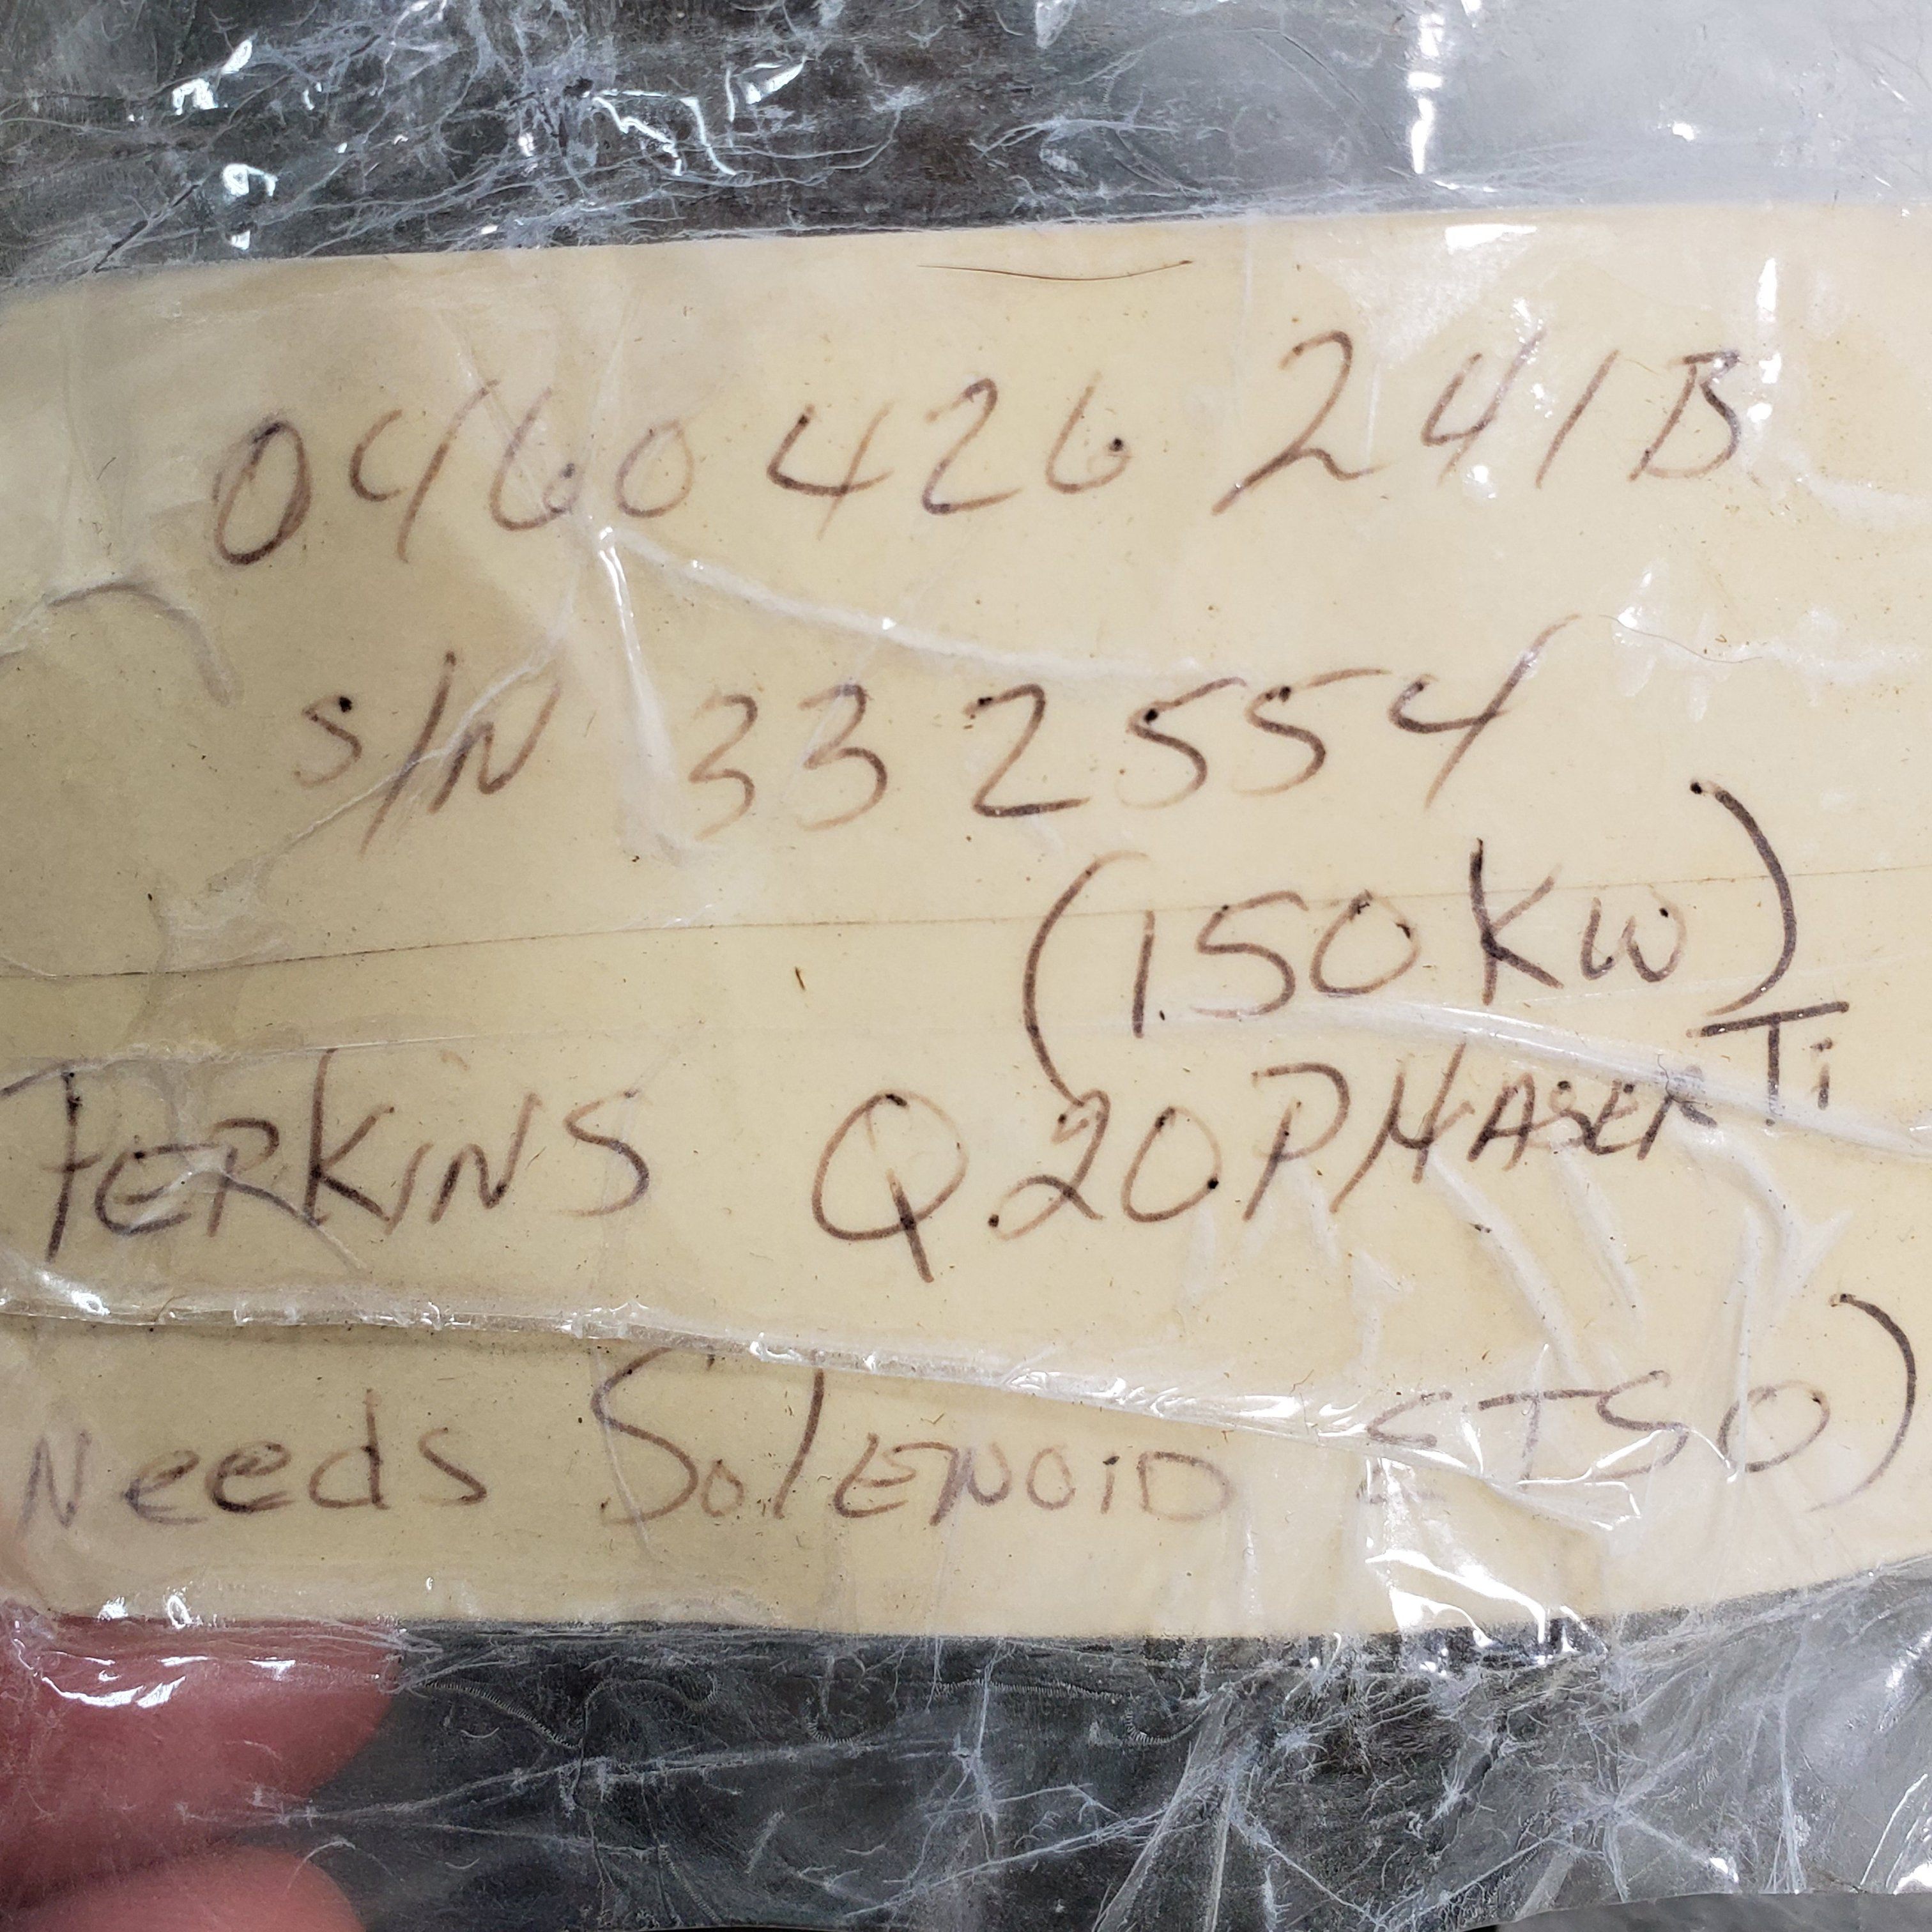 0460 426 241B
S/N 332554
(150 KW)
PERKINS Q20 PHASER Ti
Needs SolENOID STSO)